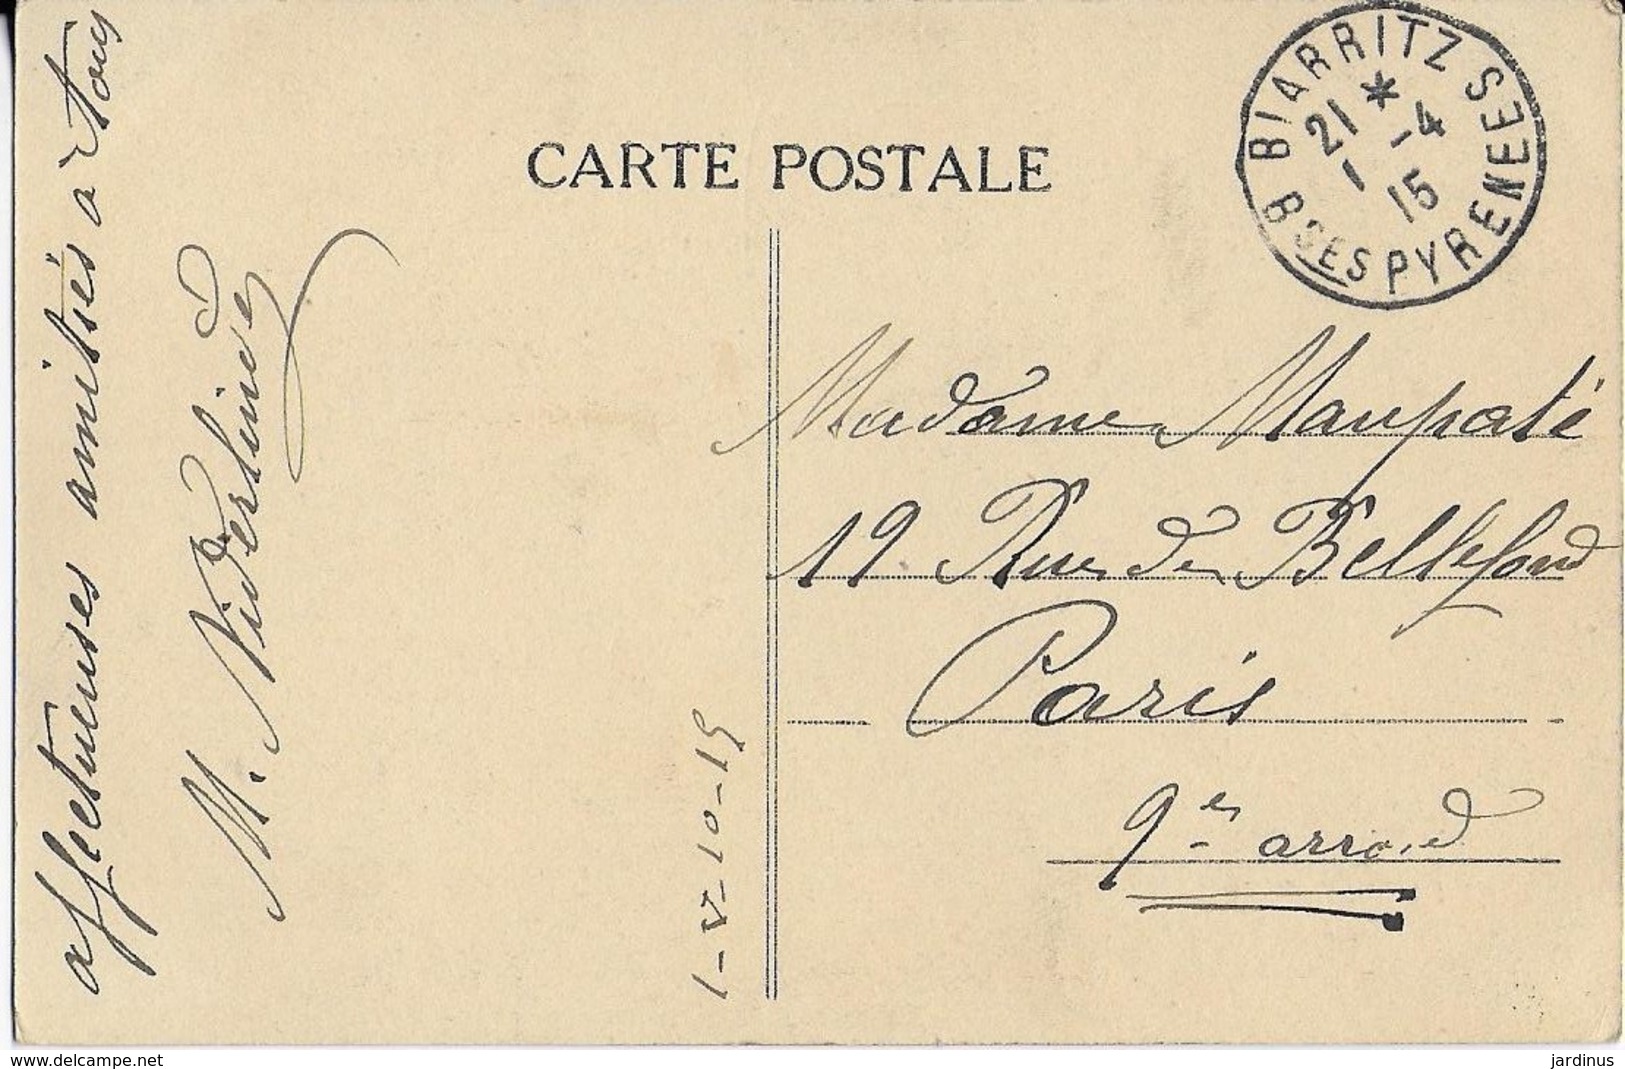 affectueuses amitiés a tous
M. Niderlinder
1-V-10-15
CARTE POSTALE
BIARRITZ
Bses PYRENEES
21 * -4
1 15
Madame Maupaté
19 Rue de Bellefond
Paris
9es arrond
www.delcampe.net
jardinus